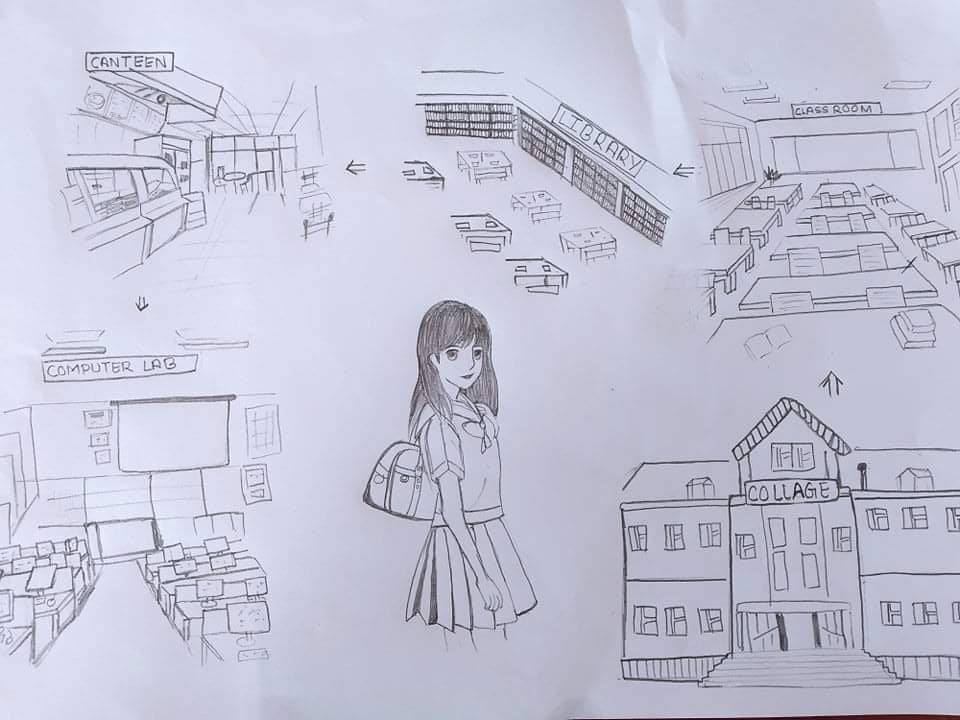 CANTEEN
LIBRARY
CLASS ROOM
COMPUTER LAB
COLLAGE